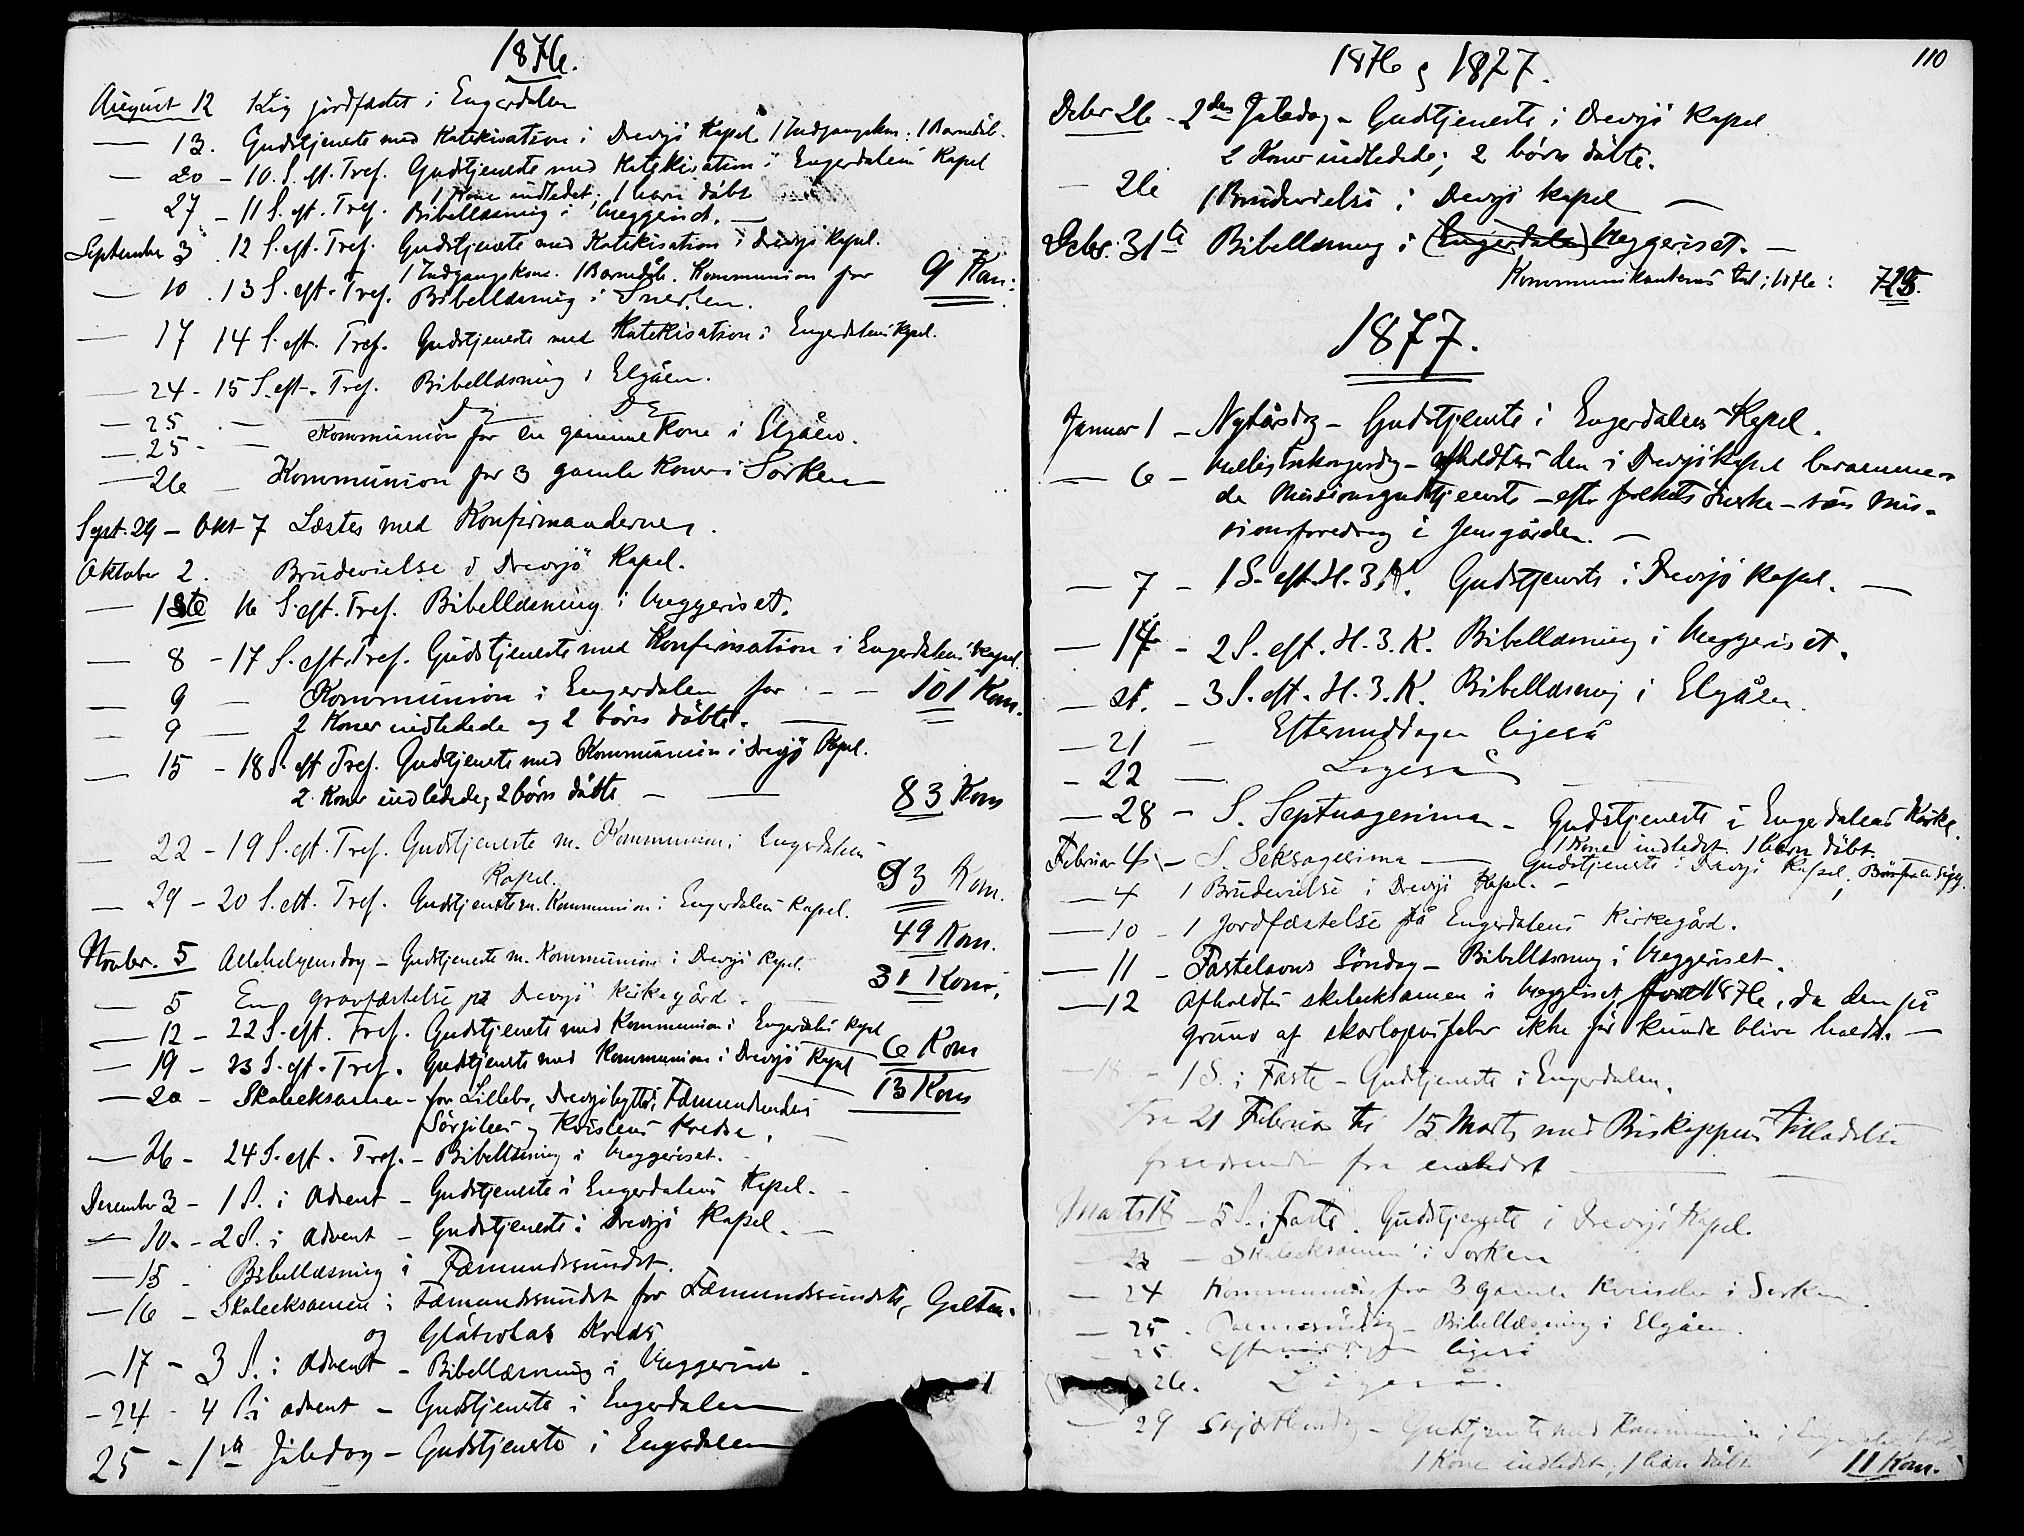 1876.
August 12 1 Lig jordfæstet i Engerdalen
— 13. Gudstjeneste med Katekisation i Drevsjö Kapel 1 Indgangskone. 1 Barnedåb.
— 20 - 10. S. eft. Tref. Gudstjeneste med Katekisation i Engerdalens Kapel
1 Kone indledet; 1 barn döbt
- 27 - 11 S. eft. Tref. Bibellæsning i Heggeriset. —
September 3 . 12 S. eft. Tref. Gudstjeneste med Katekisation i Drevsjö Kapel.
1 Indgangskone. 1 Barnedåb. Kommunion for 9 Kom:
— 10 . 13 S. eft. Tref. Bibellæsning i Snerten.
— 17 14 S. eft. Tref. Gudstjeneste med Katekisation i Engerdalens Kpel.
— 24 - 15 S. eft. Tref. Bibellæsning i Elgåen.
— 25 . — Do — Do
— 25 - — Kommunion for en gammel Kone i Elgåen.
— 26 — Kommunion for 3 gamle Koner i Sorken —
Sept. 29 - Okt 7 Læstes med Konfirmanderne.
Oktober 2. Brudevielse i Drevsjö Kapel.
— 1ste 16 S. eft. Tref. Bibellæsning i Heggeriset.
— 8 - 17 S. eft. Tref. Gudstjeneste med Konfirmation i Engerdalens Kapel.
— 9 — Kommunion i Engerdalen for - — 101 Kom.
— 9 — 2 Koner indledede og 2 börn döbte. —
— 15 - 18 S. eft Tref. Gudstjeneste med Kommunion i Drevsjö Kapel.
2 Koner indledede; 2 börn döbte — — 83 Kom
— 22 - 19 S. eft. Tref. Gudstjeneste m. Kommunion i Engerdalens
Kapel. 93 Kom.
— 29 - 20 S. eft. Tref. Gudstjeneste m. Kommunion i Engerdalens Kapel.
49 Kom.
Novbr. 5 Allehelgensdag - Gudstjeneste m. Kommunion i Drevsjö Kapel.
31 Kom.
— 5 En gravfæstelse på Drevsjö Kirkegård. —
— 12 - 22 S. eft. Tref. Gudstjeneste med Kommunion i Engerdalens Kapel
6 Kom
— 19 - 23 S. eft. Tref. Gudstjeneste med Kommunion i Drevsjö Kapel
13 Kom
— 20 - Skoleeksamen - for Lillebo, Drevsjöhytte, Fæmundendens
Sörsjöens og Kvislens Kredse. —
— 26 - 24 S. eft. Tref. - Bibellæsning i Heggeriset.
Desember 3 - 1 S. i Advent - Gudstjeneste i Engerdalens Kapel. -
— 10. - 2 S. i Advent - Gudstjeneste i Drevsjö Kapel. —
— 15 - Bibellæsning i Fæmundssundet.
— 16 - Skoleeksamen i Fæmundssundet for Fæmundssundets, Galten-
og Glötvolas Kreds
— 17 - 3 S. i Advent - Bibellæsning i Heggeriset -
- 24 - 4 S. i advent - Gudstjeneste i Engerdalen
25 - 1ste Juledag - Gudstjeneste i Engerdalen
110
1876 og 1877.
Debr 26 - 2den Juledag - Gudstjeneste i Drevsjö Kapel
2 Koner indledede; 2 börn döbte.
— 26 1 Brudevielse i Drevsjö kapel —
Debr. 31te Bibellæsning i (Engerdalen) Heggeriset. —
Kommunikanternes Tal i 1876: 725.
1877.
Januar 1 - Nytårsdag - Gudstjeneste i Engerdalens Kapel.
— 6 - Helligtrekongersdag - afholdtes den i Drevsjö Kapel berammen-
de Missionsgudstjeneste - efter folkets Ønske - som Mis-
sionsforedrag i Jensgården. —
— 7 - 1 S. eft. H. 3 K. Gudstjeneste i Drevsjö Kapel. —
— 14 - 2 S. eft. H. 3. K. Bibellæsning i Heggeriset.
— 21. - 3 S. eft. H. 3. K. Bibellæsning i Elgåen.
— 21 - Eftermiddagen ligeså
- 22 — Ligeså
— 28 - S. Septuagesima - Gudstjeneste i Engerdalens Kirke.
1 Kone indledet. 1 barn döbt.
Februar 4 - S. Seksagesima — Gudstjeneste i Drevsjö Kapel.
— 4 1 Brudevielse i Drevsjö Kapel. -
— 10 - 1 Jordfæstelse på Engerdalens Kirkegård.
— 11 - Fastelavns Söndag - Bibellæsning i Heggeriset.
— 12 Afholdtes skoleeksamen i Heggeriset for 1876, da den på
grund af skarlagensfeber ikke för kunde blive holdt. —
18 - 1 S. i Faste - Gudstjeneste i Engerdalen.
Fra 21 Februar til 15 Marts med Biskoppens Tilladelse
fraværende fra embedet —
Marts 18 - 5 S. i Faste. Gudstjeneste i Drevsjö Kapel.
— 23 - Skoleeksamen i Sorken
— 24 Kommunion for 3 gamle Kvinder i Sorken.
— 25 - Palmesöndag - Bibellæsning i Elgåen.
— 25 Eftermiddagen ligeså
26. Ligeså.
— 29 Skjærtorsdag - Gudstjeneste med Kommunion i Engerdalens
1 Kone indledet; 1 barn döbt 11 Kom.